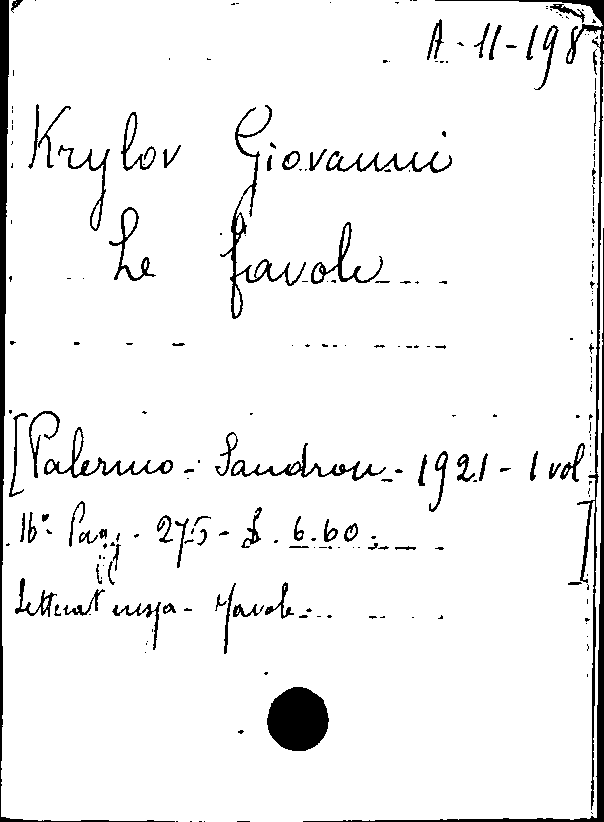 A-11-198
Krylov Giovanni
Le favole
[Palermo - Sandron - 1921 - 1 vol
16° Pagg. 275 - £. 6.60 ]
Letterat russa - Favole